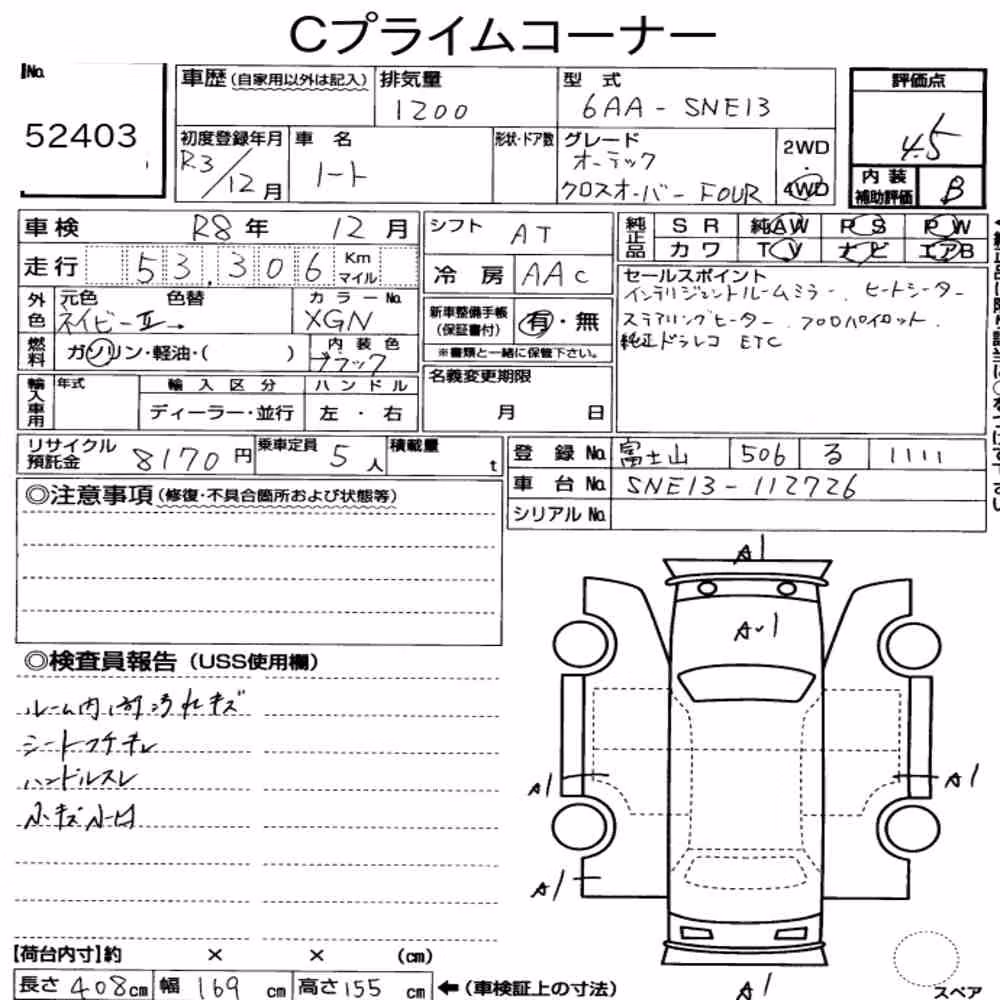 Cプライムコーナー
No.
52403
車歴(自家用以外は記入)
排気量
1200
型 式
6AA-SNE13
評価点
4.5
初度登録年月
R3/12月
車 名
ノート
形状・ドア数
グレード
オーテック
クロスオーバー FOUR
2WD
・
4WD
内 装
補助評価
B
車検 R8年 12月
走行 53,306 Km マイル
シフト AT
冷 房 AAC
純正品
SR 純AW PS PW
カワ TV ナビ エアB
外色
元色 色替
ネイビーII→
カラーNo.
XGN
新車整備手帳
(保証書付)
有・無
※書類と一緒に保管下さい。
セールスポイント
インテリジェントルームミラー、ヒートシーター
ステアリングヒーター、プロパイロット、
純正ドラレコ ETC
燃料
ガソリン・軽油・( )
内 装 色
ブラック
輸入車用
年式
輸 入 区 分
ディーラー・並行
ハ ン ド ル
左 ・ 右
名義変更期限
月 日
リサイクル
預託金
8170円
乗車定員 5人
積載量 t
登 録 No. 富士山 506 る 1111
車 台 No. SNE13-112726
シリアル No.
◎注意事項(修復・不具合箇所および状態等)
◎検査員報告(USS使用欄)
ルーム内部汚れキズ
シートコゲキレ
ハンドルスレ
小キズ小凹
A1
A・1
A1
A1
A1
A1
スペア
【荷台内寸】約 × × (cm)
長さ 408cm 幅 169 cm 高さ 155 cm ←(車検証上の寸法)